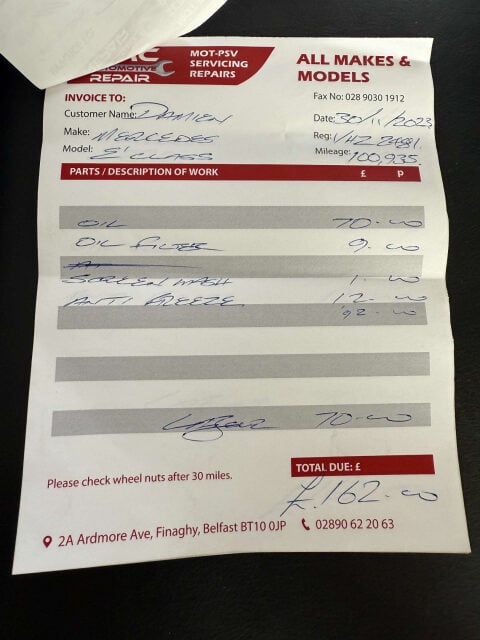 MOT-PSV
SERVICING
REPAIRS
AUTOMOTIVE
REPAIR
ALL MAKES &
MODELS
INVOICE TO:
Fax No: 028 9030 1912
Customer Name: DAMIEN
Date: 30/11/2023
Make: MERCEDES
Reg:
Model: E' CLASS
Mileage: 100,935.
PARTS / DESCRIPTION OF WORK £ P
OIL 70.00
OIL FILTER 9.00
SCREEN WASH 1.00
ANTI FREEZE 12.00
92.00
LABOUR 70.00
Please check wheel nuts after 30 miles.
TOTAL DUE: £
£162.00
2A Ardmore Ave, Finaghy, Belfast BT10 0JP 02890 62 20 63